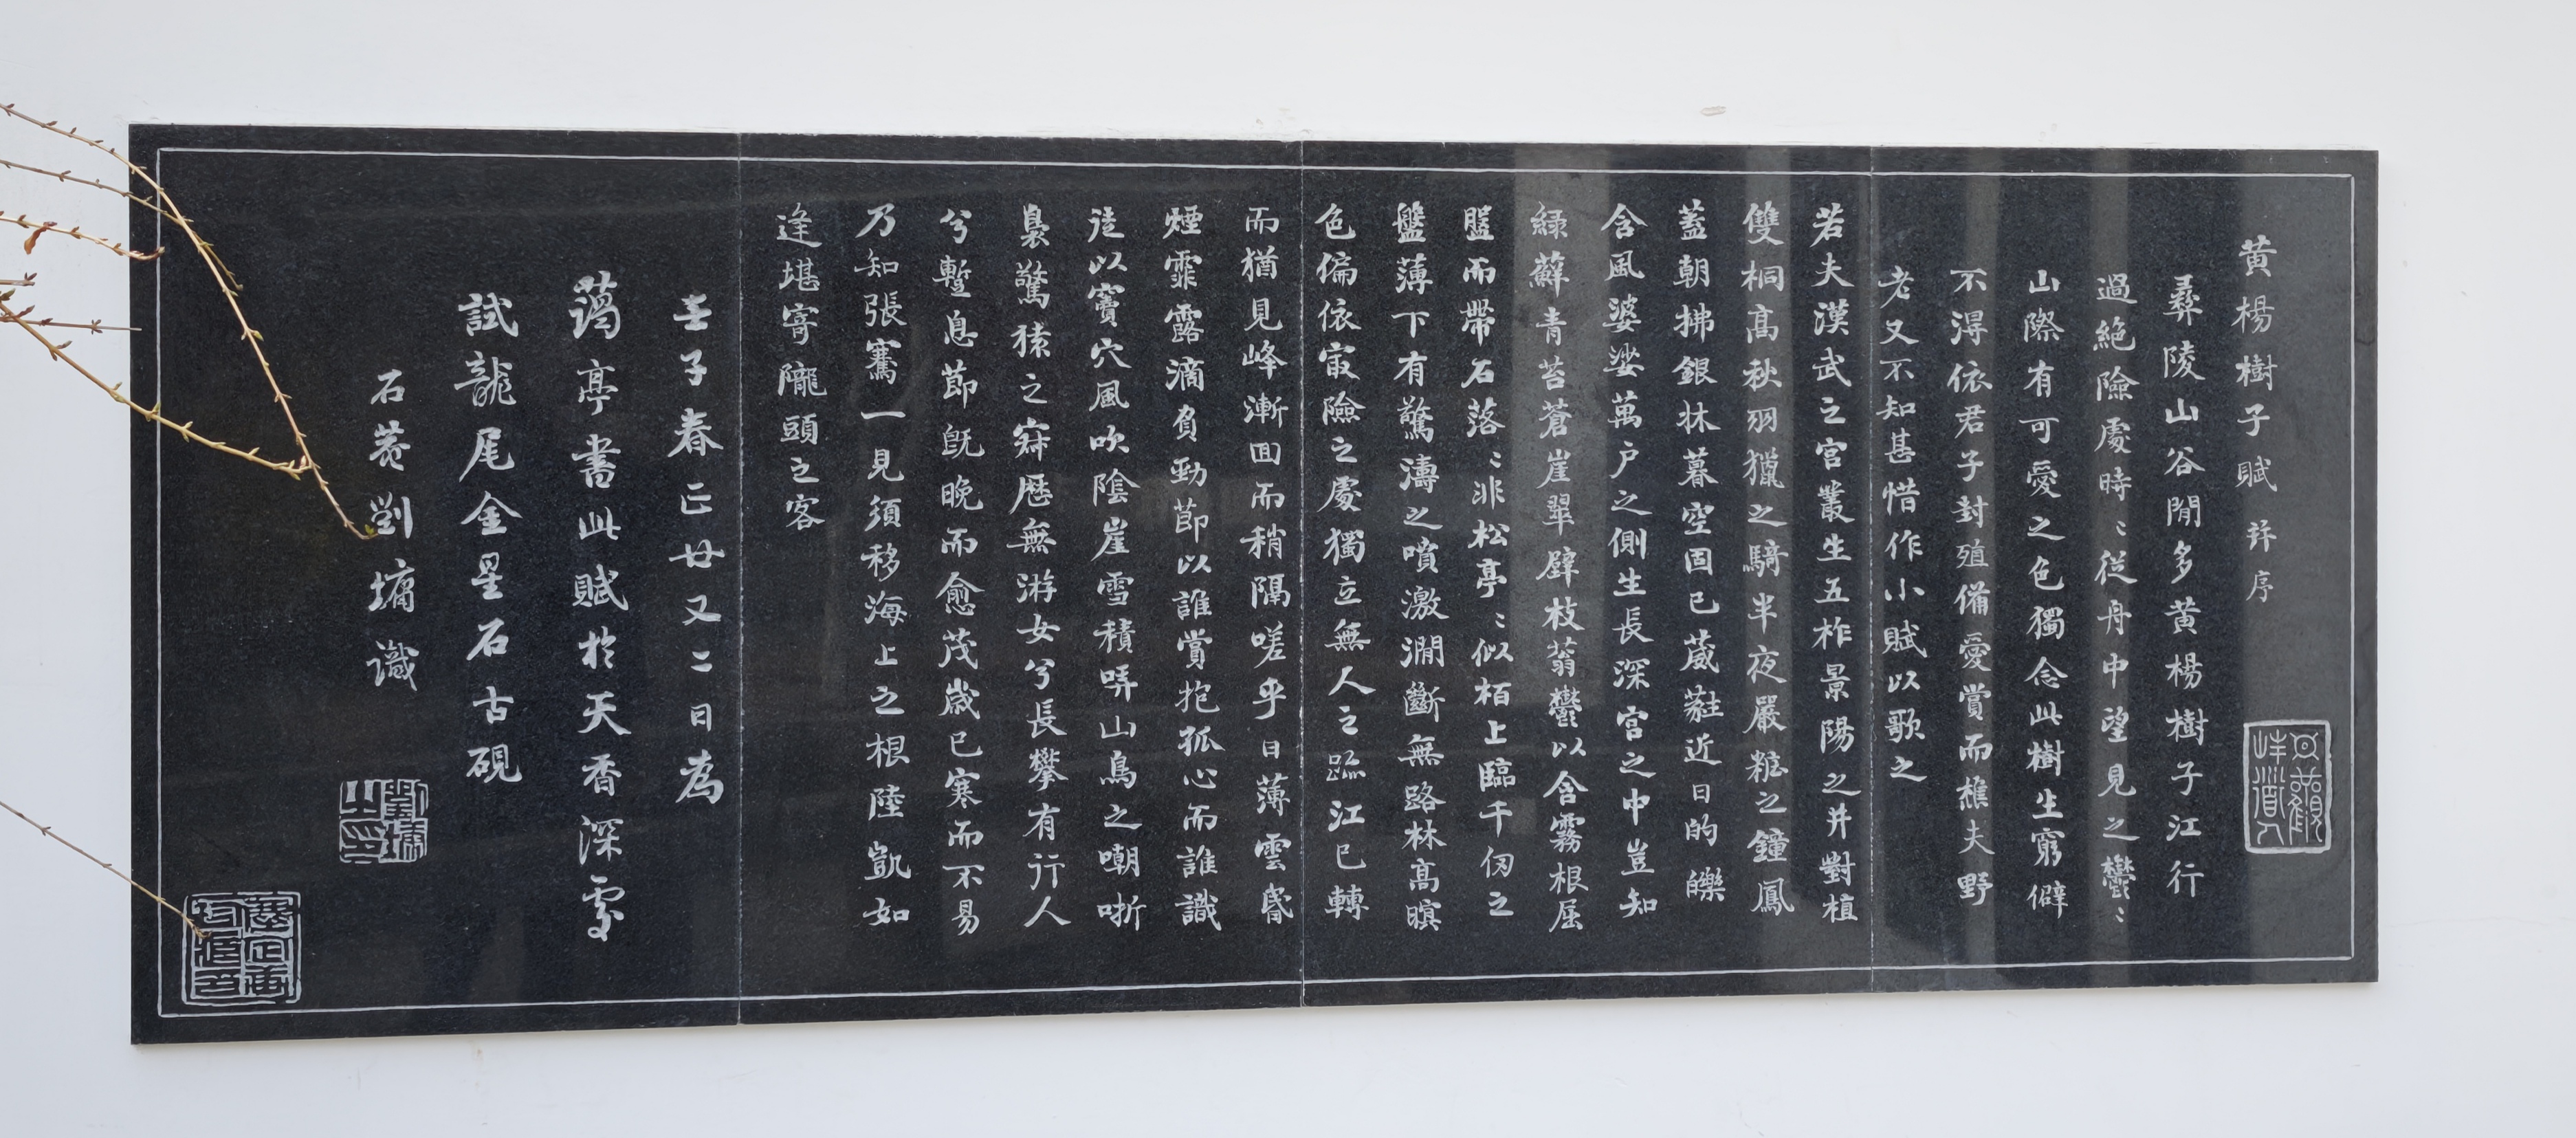 黄楊樹子賦 并序
彞陵山谷閒多黄楊樹子江行
過絶險處時:從舟中望見之鬱:
山際有可愛之色獨念此樹生窮僻
不淂依君子封殖備愛賞而樵夫野
老又不知甚惜作小賦以歌之
若夫漢武之宫叢生五柞景陽之井對植
雙桐髙秋羽獵之騎半夜嚴粧之鐘鳳
蓋朝拂銀牀暮空固已葳蕤近日的皪
含風婆娑萬户之側生長深宫之中豈知
緑蘚青苔蒼崖翠壁枝蓊鬱以含霧根屈
盤而帶石落:非松亭:似栢上臨千仞之
盤薄下有驚濤之噴激澗斷無路林髙暝
色偏依㝡險之處獨立無人之跡江已轉
而猶見峰漸囬而稍隔嗟乎日薄雲昏
煙霏露滴負勁節以誰賞抱孤心而誰識
徒以竇穴風吹陰崖雪積哢山鳥之嘲哳
裊驚猿之寂歷無游女兮長攀有行人
兮暫息節既晚而愈茂歲已寒而不易
乃知張騫一見須移海上之根陸凱如
逢堪寄隴頭之客
壬子春正廿又二日為
蔼亭書此賦扵天香深處
試龍尾金星石古硯
石菴劉墉識
劉墉之印